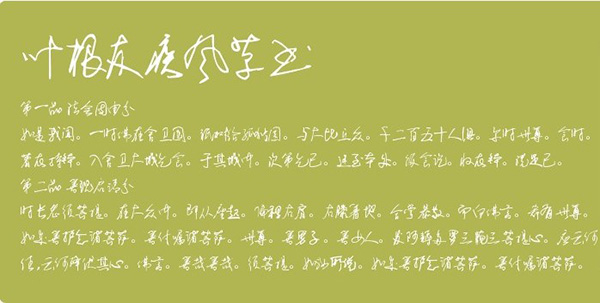 叶根友疾风草书
第一品 法会因由分
如是我闻。一时佛在舍卫国。祇树给孤独园。与大比丘众。千二百五十人俱。尔时世尊。食时。
著衣持钵。入舍卫大城乞食。于其城中。次第乞已。还至本处。饭食讫。收衣钵。洗足已。
第二品 善现启请分
时长老须菩提。在大众中。即从座起。偏袒右肩。右膝著地。合掌恭敬。而白佛言。希有世尊。
如来善护念诸菩萨。善付嘱诸菩萨。世尊。善男子。善女人。发阿耨多罗三藐三菩提心。应云何
住,云何降伏其心。佛言。善哉善哉。须菩提。如汝所说。如来善护念诸菩萨。善付嘱诸菩萨。